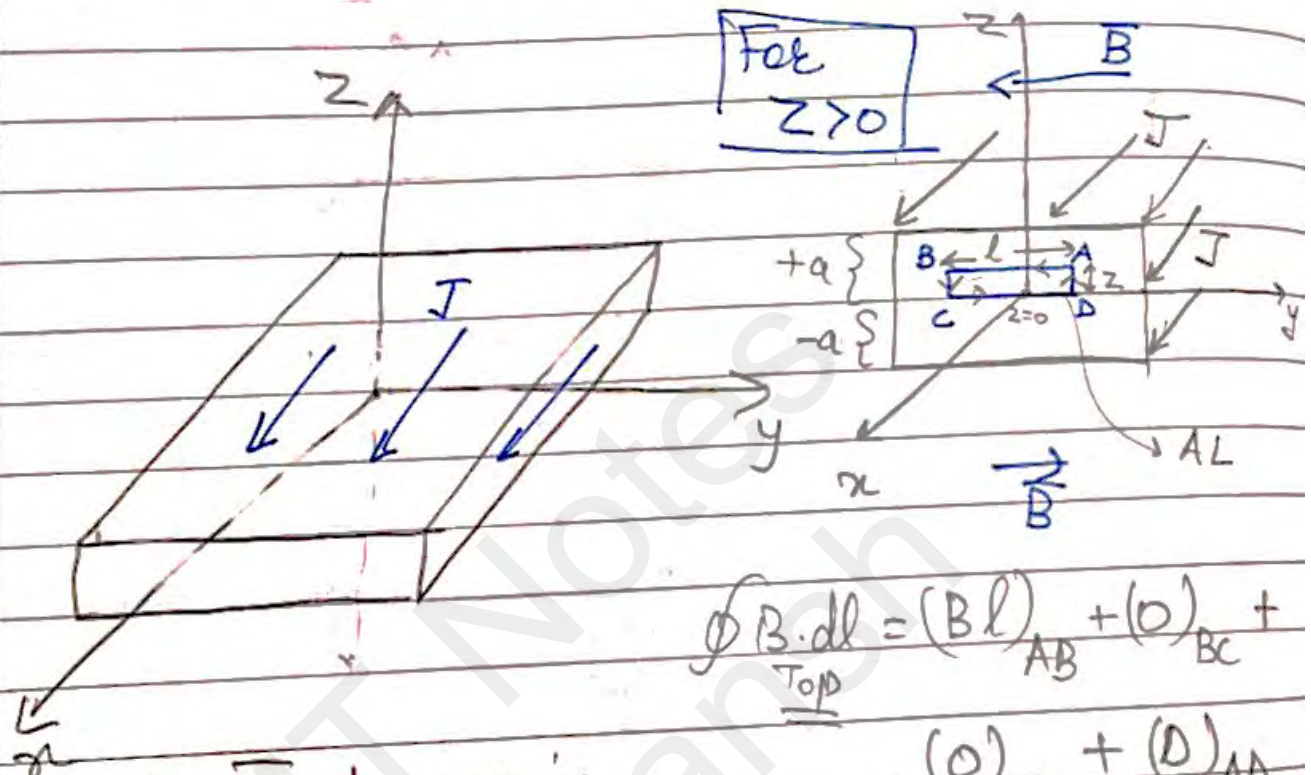 For
Z>0
Z
B
J
J
+a {
-a {
B
l
A
Z
C
z=0
D
y
x
AL
B
Z
J
y
x
∮ B·dl = (Bl)AB + (0)BC +
Top
(0) + (D)
Notes